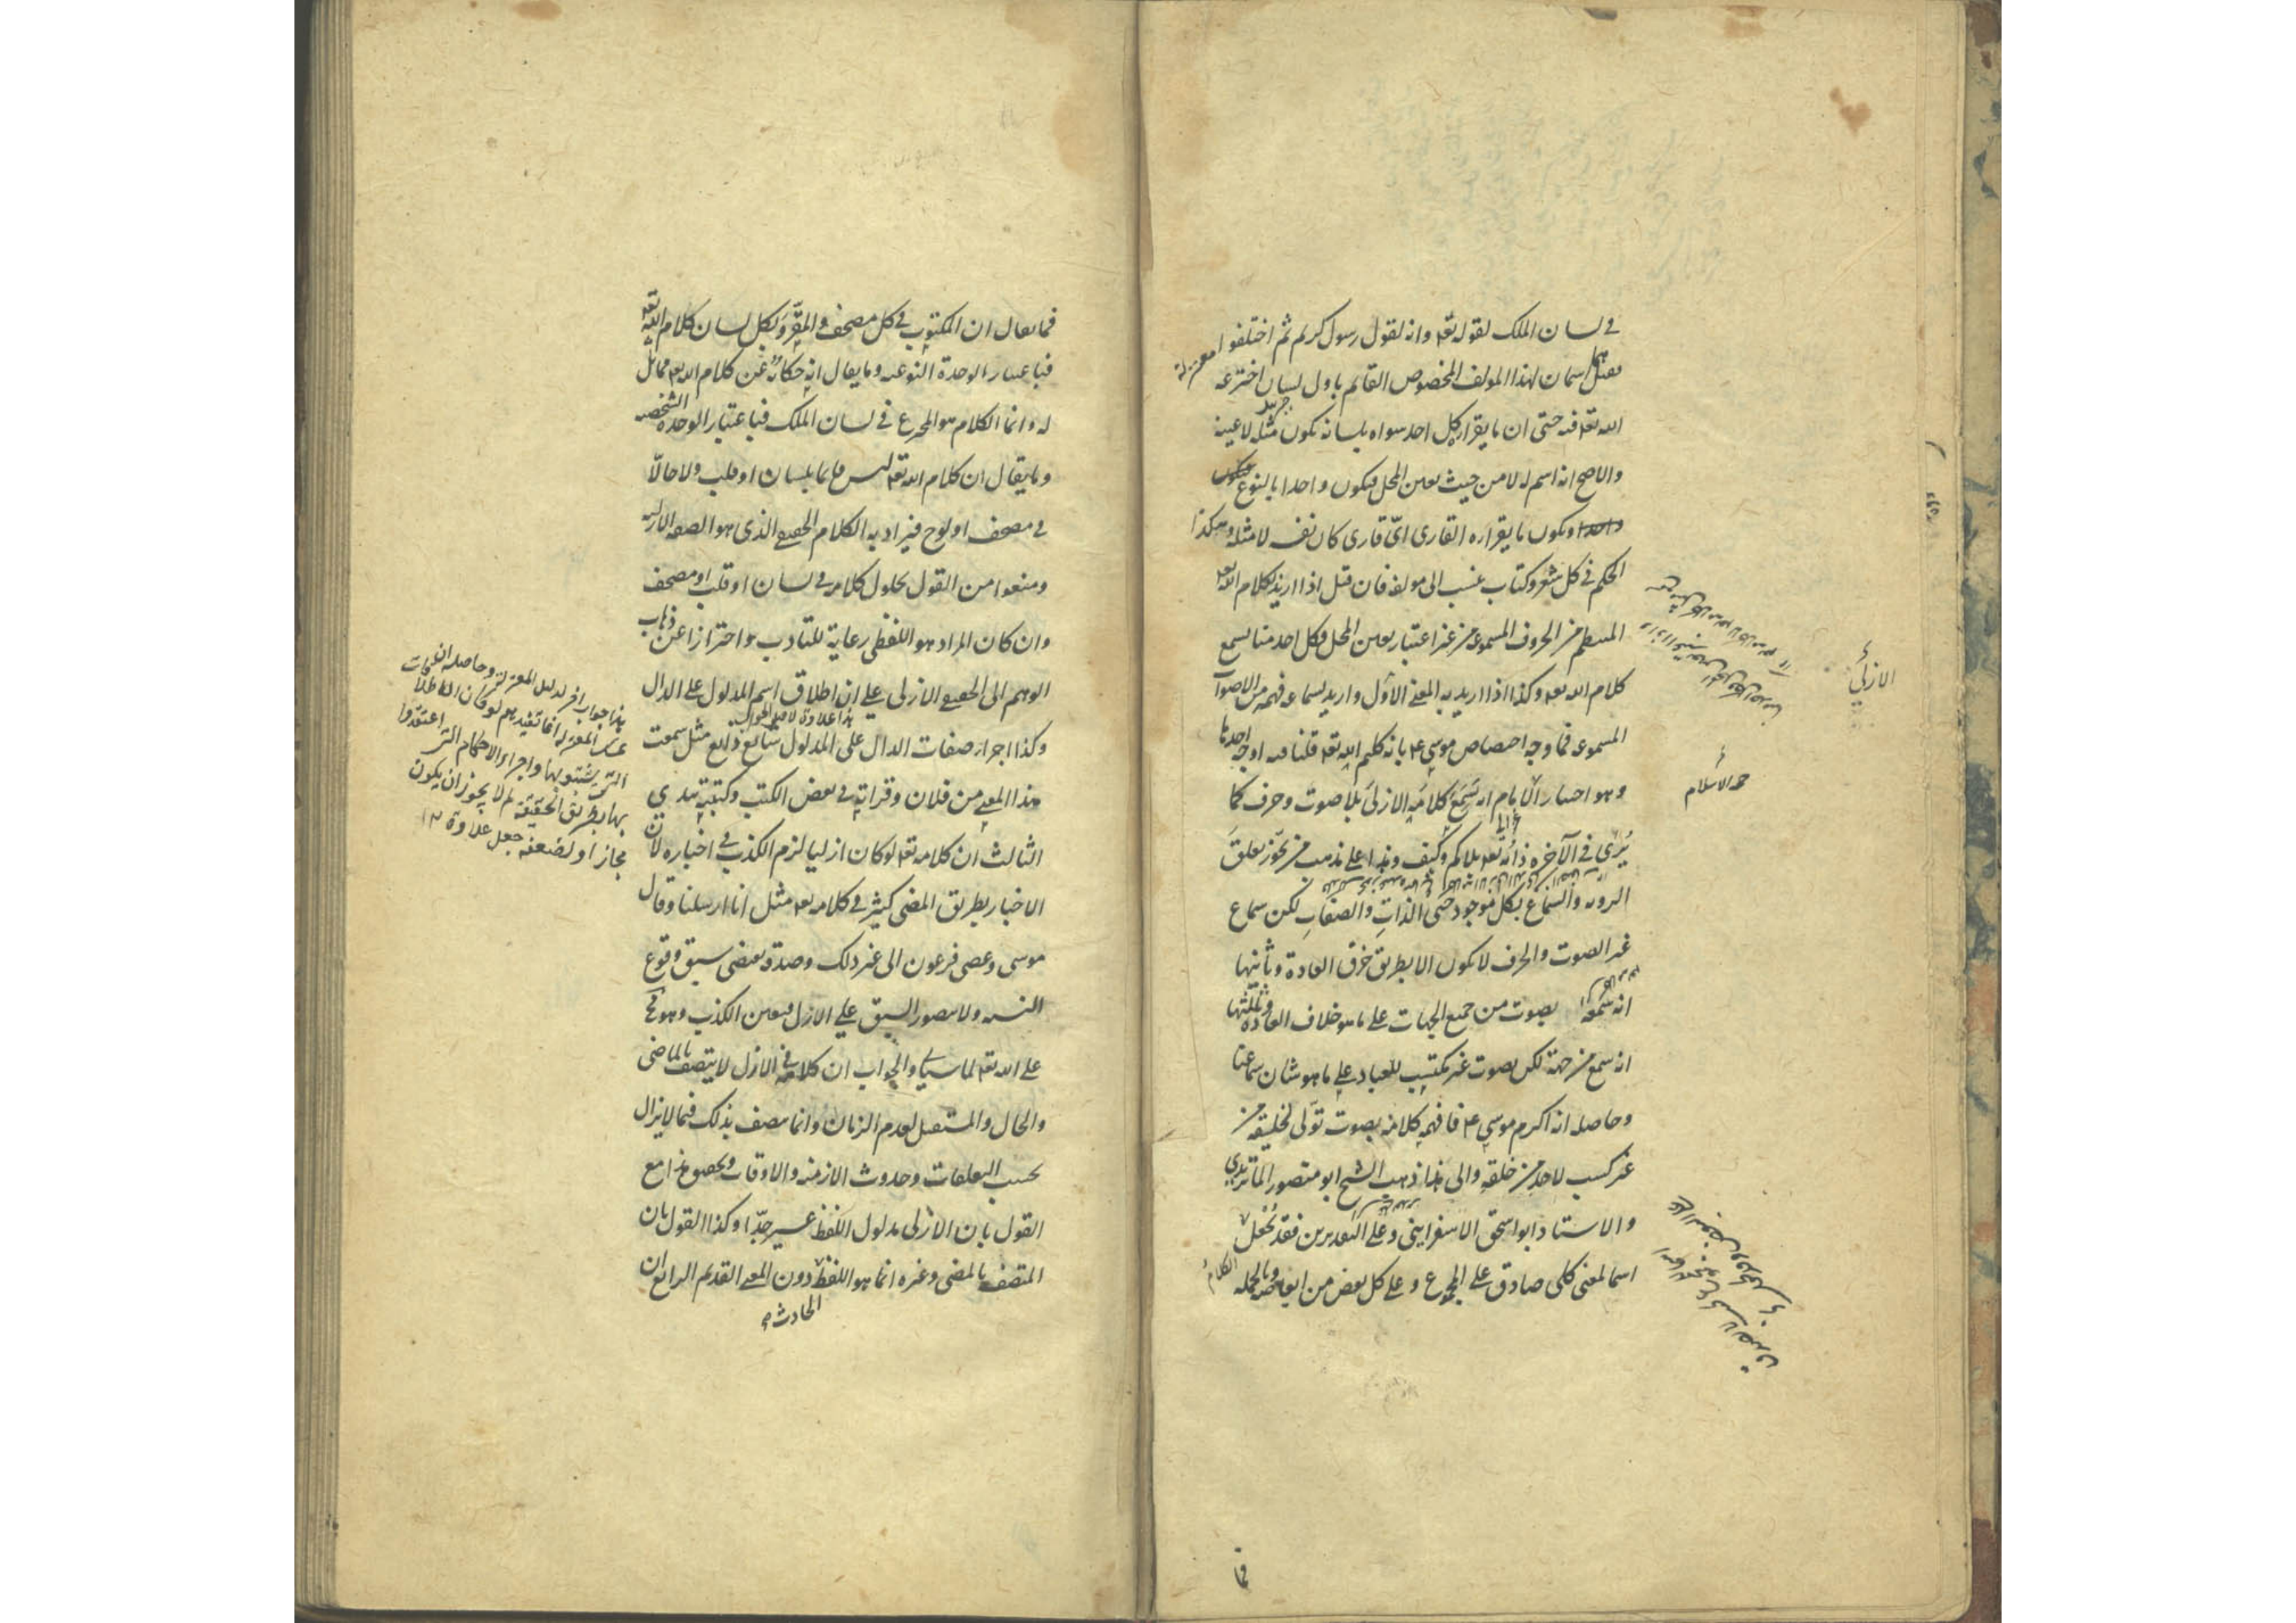 في لسان الملك لقوله تعه وانه لقول رسول كريم ثم اختلفوا
فقيل هما اسمان لهذا المولف المخصوص القايم باول لسان اخترعه
الله تعه فيه حتى ان ما يقراه كل احد سواه بلسانه يكون مثله لا عينه
والاصح انه اسم له لا من حيث تعين المحل فيكون واحدا بالنوع
ويكون ما يقراه القارى اىّ قارى كان نفسه لا مثله وهكذا
الحكم في كل شعر وكتاب ينسب الى مولفه فان قيل اذا اريد بكلام الله تعه
المنتظم من الحروف المسموعة من غير اعتبار تعين المحل فكل احد منا يسمع
كلام الله تعه وكذا اذا اريد به المعنى الاول واريد بسماعه فهمه من الاصوات
المسموعة فما وجه اختصاص موسى ع م بانه كليم الله تعه قلنا فيه اوجه احدها
وهو اختيار الامام انه سمع كلامه الازلي بلا صوت وحرف كما
يُرى في الآخرة ذاته تعه بلا كم وكيف وهذا على مذهب من يجوز تعلق
الروية والسماع بكل موجود حتى الذات والصفات لكن سماع
غير الصوت والحرف لا يكون الا بطريق خرق العادة وثانيها
انه سمعه بصوت من جميع الجهات على ما هو خلاف العادة وثالثها
انه سمع من جهة لكن بصوت غير مكتسب للعباد على ما هو شان سماعنا
وحاصله انه اكرم موسى ع م فافهمه كلامه بصوت تولى تخليقه من
غير كسب لاحد من خلقه والى هذا ذهب الشيخ ابو منصور الماتريدي
والاستاد ابو اسحق الاسفرايني وعلى التقديرين فقد يُجعل
اسما لمعنى كلي صادق على المجموع وعلى كل بعض من ابعاضه وبالجملة
الازلي
حجة الاسلام
فما
فما يقال ان المكتوب في كل مصحف والمقرو بكل لسان كلام الله تعه
فباعتبار الوحدة النوعيه وما يقال انه حكاية عن كلام الله تعه مماثل
له وانما الكلام هو المخترع في لسان الملك فباعتبار الوحدة الشخصيه
وما يقال ان كلام الله تعه ليس قايما بلسان او قلب ولا حالّا
في مصحف او لوح فيراد به الكلام الحقيقي الذى هو الصفه الازليه
ومنعوا من القول بحلول كلامه في لسان او قلب او مصحف
وان كان المراد هو اللفظى رعاية للتادب واحترازا عن ذهاب
الوهم الى الحقيقي الازلى على ان اطلاق اسم المدلول على الدال
وكذا اجراء صفات الدال على المدلول شايع ذايع مثل سمعت
هذا المعنى من فلان وقراته في بعض الكتب وكتبته بيدي
الثالث ان كلامه تعه لو كان ازليا لزم الكذب في اخباره لان
الاخبار بطريق المضى كثير في كلامه تعه مثل انا ارسلنا وقال
موسى وعصى فرعون الى غير ذلك وصدقه يقتضى سبق وقوع
النسبه ولا يتصور السبق على الازل فيتعين الكذب وهو مح
على الله تعه لما سياتي والجواب ان كلامه في الازل لا يتصف بالماضى
والحال والمستقبل لعدم الزمان وانما يتصف بذلك فيما لا يزال
بحسب التعلقات وحدوث الازمنه والاوقات وتحقيق هذا مع
القول بان الازلى مدلول اللفظ عسير جدّا وكذا القول بان
المتصف بالمضى وغيره انما هو اللفظ دون المعنى القديم الرابع ان
الحادث
هذا جواب اخر لدليل المعتزلة وحاصله ان
المعتزلة انما تفيدهم لو كان الاطلاقات
التى يثبتوا بها واجراء الاحكام التى اعتقدوا
بها بطريق الحقيقة لم لا يجوز ان يكون
مجازا ولضعفه جعل علاوة ١٢